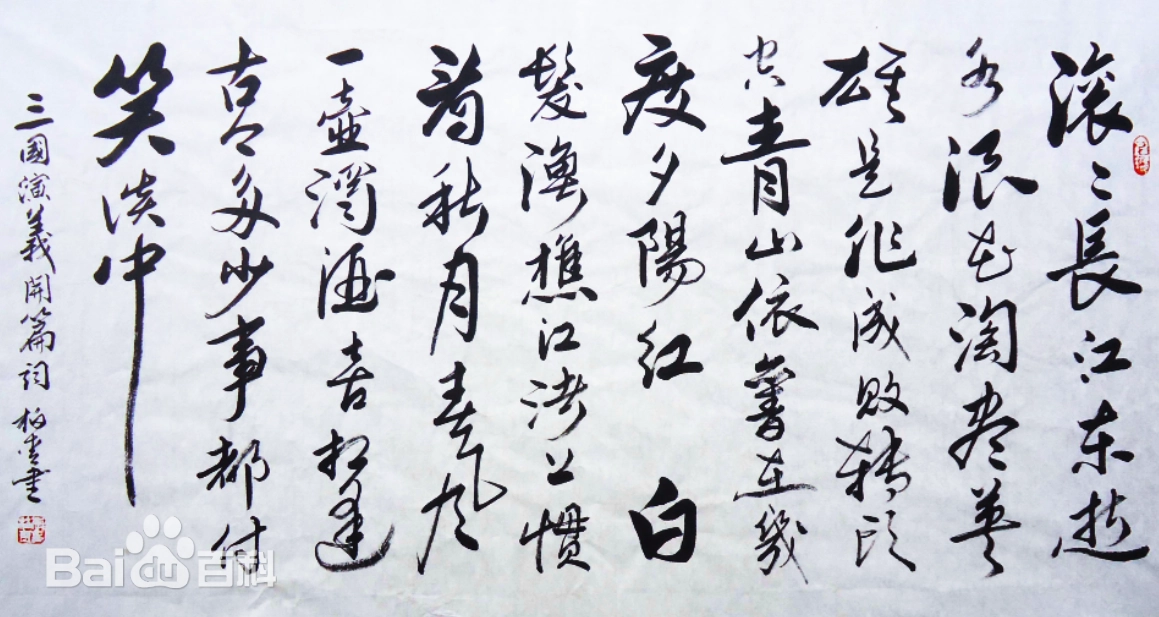 滚〻長江东逝
水浪花淘尽英
雄是非成败转头
空青山依舊在幾
度夕陽红 白
髮渔樵江渚上惯
看秋月春风
一壶浊酒喜相逢
古今多少事都付
笑谈中
三國演義開篇词 柏堂書
Bai百科